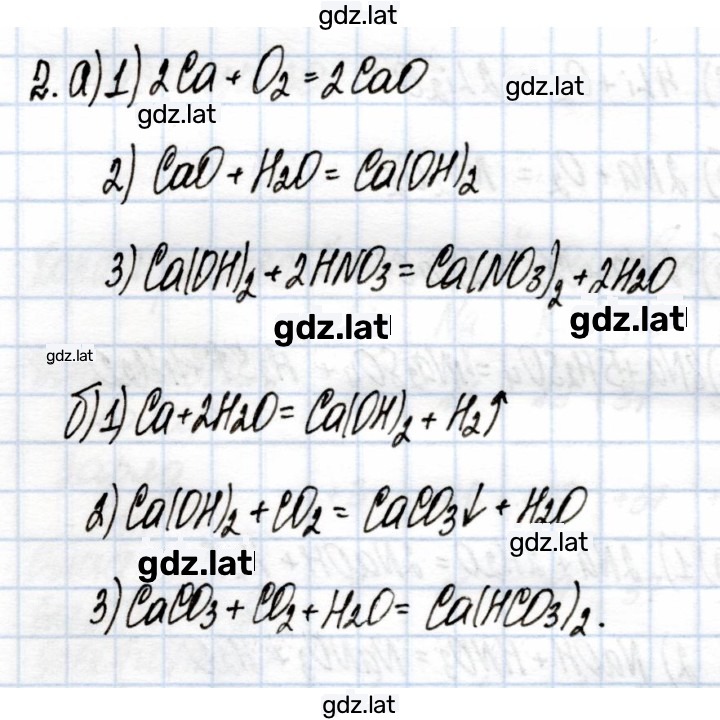 gdz.lat
2. а) 1) 2Ca + O₂ = 2CaO
gdz.lat
gdz.lat
2) CaO + H₂O = Ca(OH)₂
3) Ca(OH)₂ + 2HNO₃ = Ca(NO₃)₂ + 2H₂O
gdz.lat
gdz.lat
gdz.lat
б) 1) Ca + 2H₂O = Ca(OH)₂ + H₂↑
2) Ca(OH)₂ + CO₂ = CaCO₃↓ + H₂O
gdz.lat
gdz.lat
3) CaCO₃ + CO₂ + H₂O = Ca(HCO₃)₂.
gdz.lat